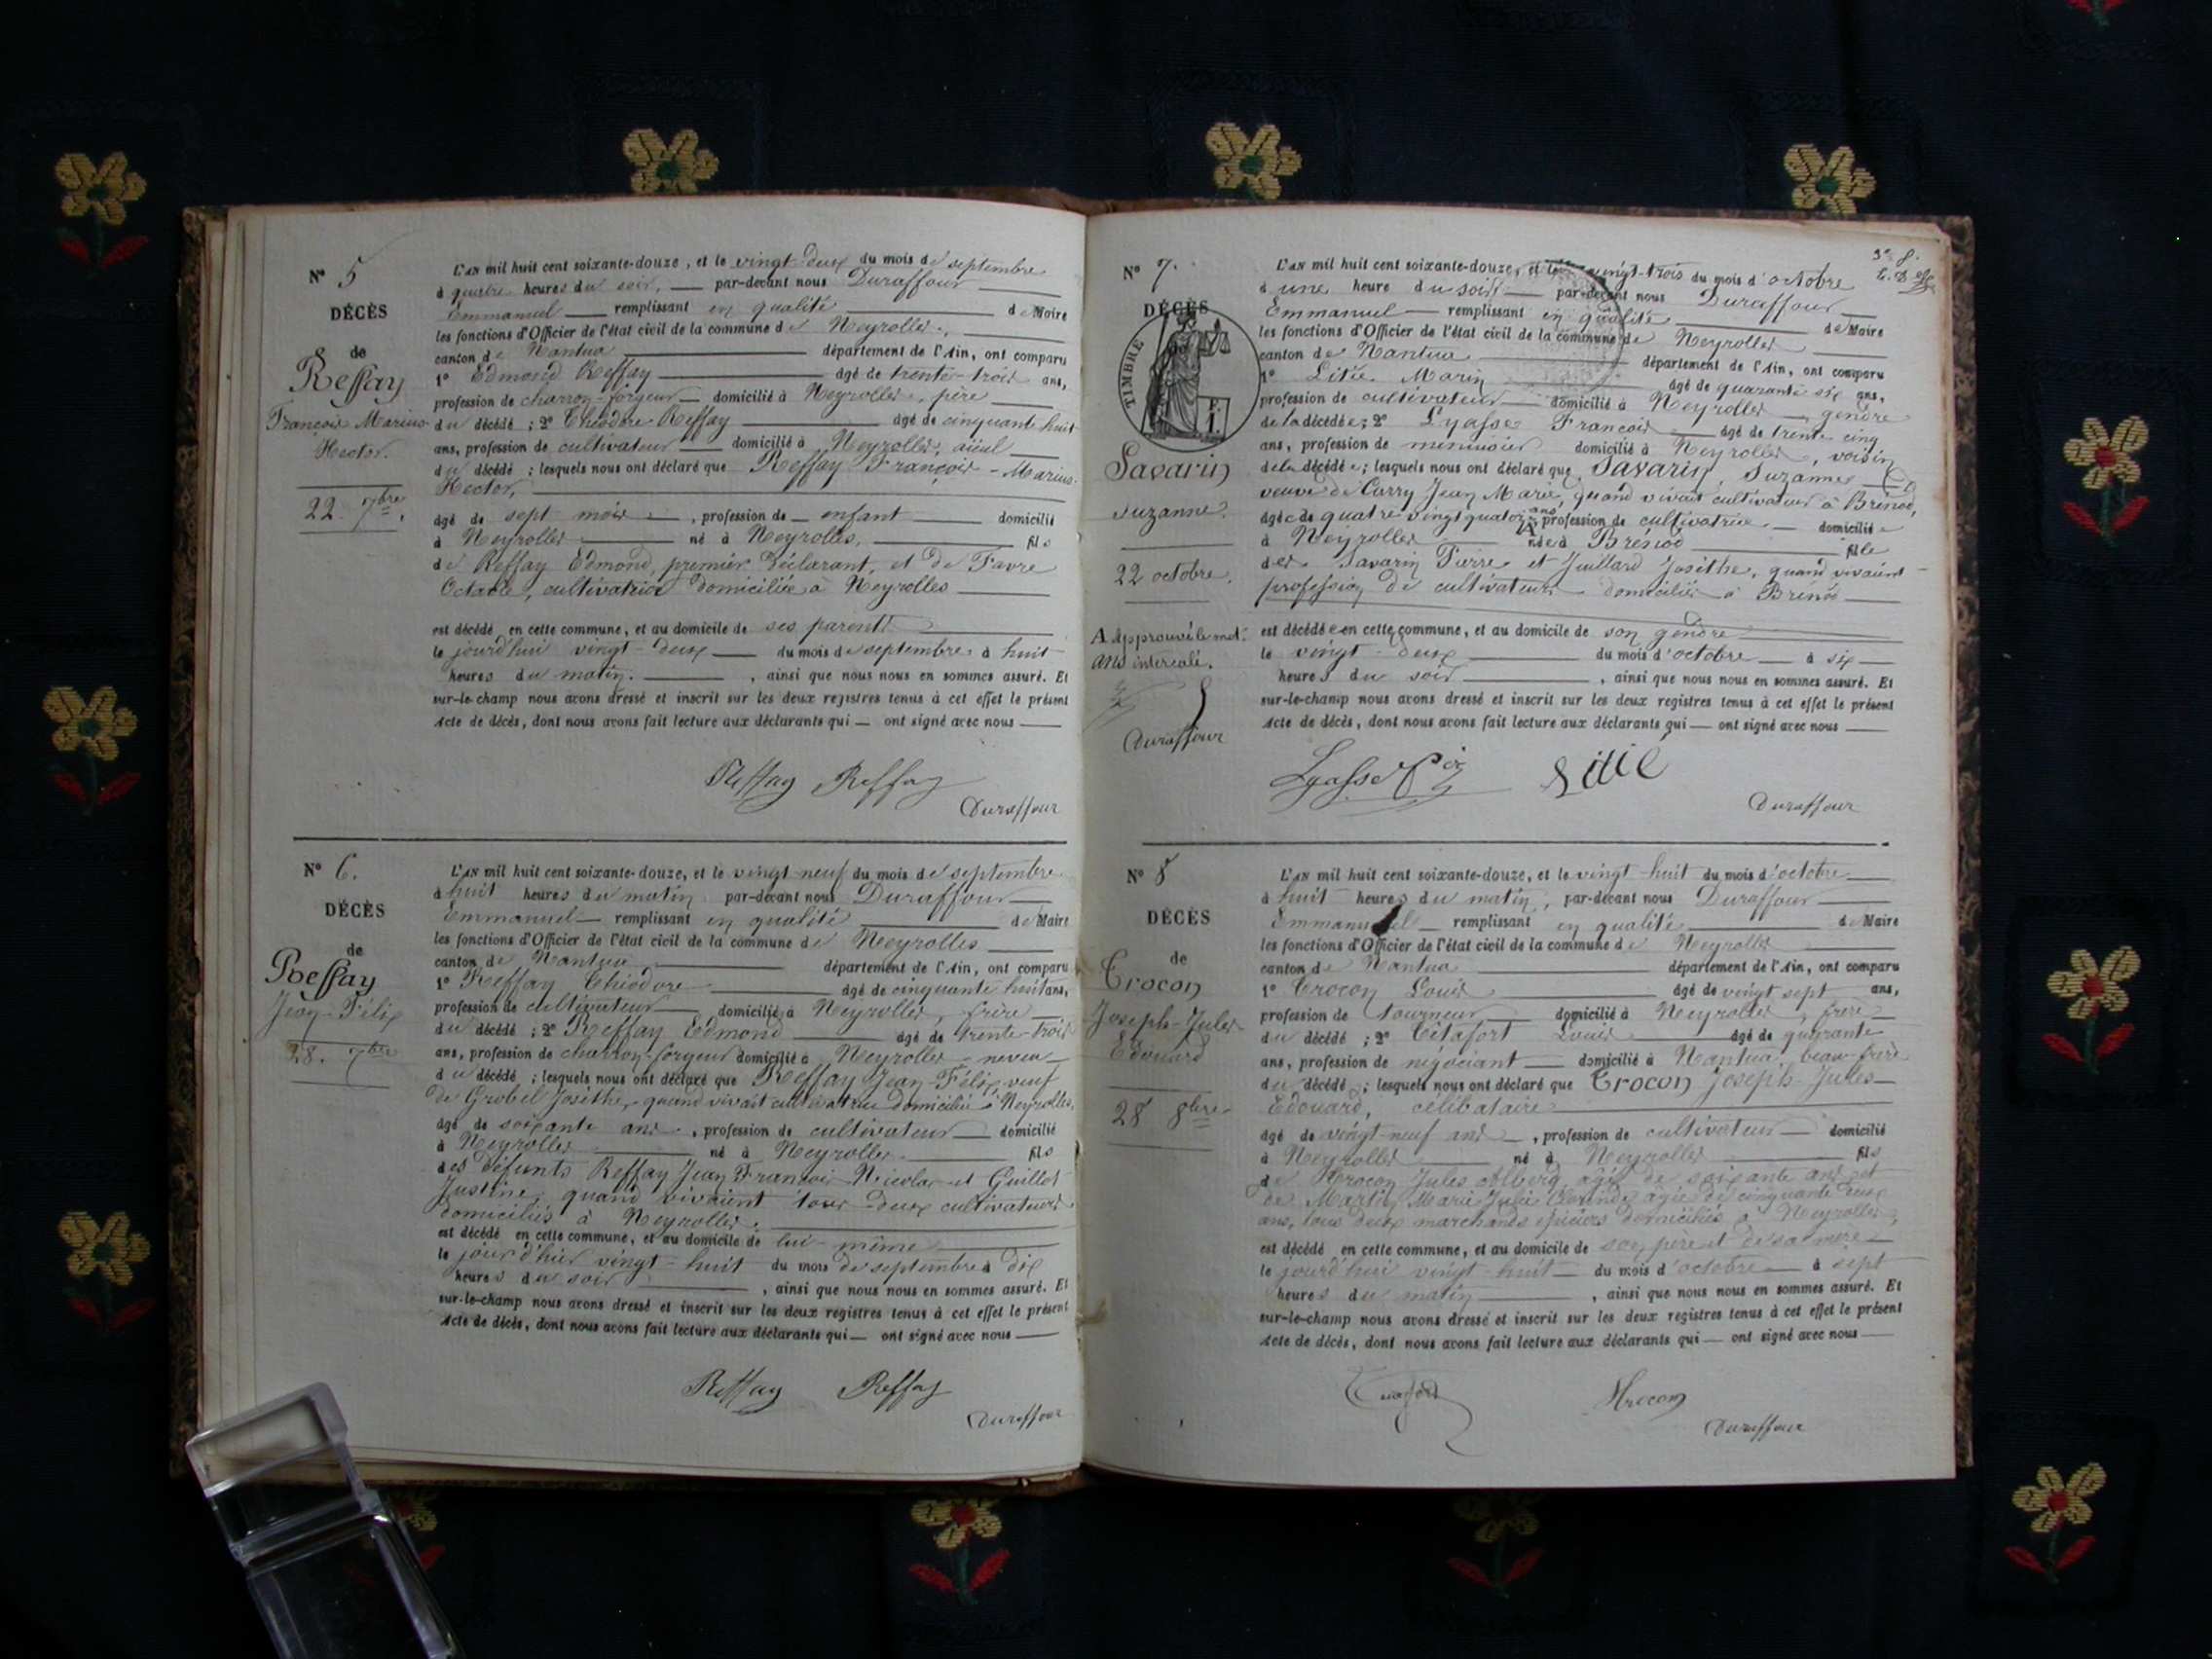 N° 5
DÉCÈS
de
Reffay
François Marius
Hector.
22. 7bre.
L'an mil huit cent soixante-douze, et le vingt-deux du mois de septembre
à quatre heures du soir, par-devant nous Duraffour
Emmanuel remplissant en qualité de Maire
les fonctions d'Officier de l'état civil de la commune de Neyrolles,
canton de Nantua département de l'Ain, ont comparu
1° Edmond Reffay âgé de trente-trois ans,
profession de charron-forgeur domicilié à Neyrolles, père
du décédé ; 2° Théodore Reffay âgé de cinquante huit
ans, profession de cultivateur domicilié à Neyrolles, aïeul
du décédé ; lesquels nous ont déclaré que Reffay François-Marius-
Hector,
âgé de sept mois, profession de enfant domicilié
à Neyrolles né à Neyrolles, fils
de Reffay Edmond, premier déclarant, et de Favre
Octavie, cultivatrice domiciliée à Neyrolles
est décédé en cette commune, et au domicile de ses parents
le jourd'hui vingt-deux du mois de septembre à huit
heures du matin, ainsi que nous nous en sommes assuré. Et
sur-le-champ nous avons dressé et inscrit sur les deux registres tenus à cet effet le présent
Acte de décès, dont nous avons fait lecture aux déclarants qui — ont signé avec nous
Reffay Reffay
Duraffour
N° 6.
DÉCÈS
de
Reffay
Jean-Félix
28. 7bre
L'an mil huit cent soixante-douze, et le vingt-neuf du mois de septembre
à huit heures du matin par-devant nous Duraffour
Emmanuel remplissant en qualité de Maire
les fonctions d'Officier de l'état civil de la commune de Neyrolles
canton de Nantua département de l'Ain, ont comparu
1° Reffay Théodore âgé de cinquante huit ans,
profession de cultivateur domicilié à Neyrolles, frère
du décédé ; 2° Reffay Edmond âgé de trente-trois
ans, profession de charron-forgeur domicilié à Neyrolles neveu
du décédé ; lesquels nous ont déclaré que Reffay Jean-Félix, veuf
de Grobel Josithe, quand vivait cultivatrice domiciliée à Neyrolles,
âgé de soixante ans, profession de cultivateur domicilié
à Neyrolles né à Neyrolles fils
des défunts Reffay Jean François Nicolas et Guillot
Justine, quand vivaient tous deux cultivateurs
domiciliés à Neyrolles.
est décédé en cette commune, et au domicile de lui-même
le jour d'hier vingt-huit du mois de septembre à dix
heures du soir, ainsi que nous nous en sommes assuré. Et
sur-le-champ nous avons dressé et inscrit sur les deux registres tenus à cet effet le présent
Acte de décès, dont nous avons fait lecture aux déclarants qui — ont signé avec nous
Reffay Reffay
Duraffour
N° 7.
DÉCÈS
TIMBRE
Savarin
Suzanne.
22 octobre.
A Approuvé le mot
ans intercalé.
Duraffour
L'an mil huit cent soixante-douze, et le vingt-trois du mois d'octobre
à une heure du soir par-devant nous Duraffour
Emmanuel remplissant en qualité de Maire
les fonctions d'Officier de l'état civil de la commune de Neyrolles
canton de Nantua département de l'Ain, ont comparu
1° Litié Marin âgé de quarante six ans,
profession de cultivateur domicilié à Neyrolles gendre
de la décédée ; 2° Lyasse François âgé de trente-cinq
ans, profession de menuisier domicilié à Neyrolles, voisin
de la décédée ; lesquels nous ont déclaré que Savarin, Suzanne
veuve de Carry Jean Marie, quand vivait cultivateur à Brénod,
âgée de quatre vingt quatorze ans profession de cultivatrice domiciliée
à Neyrolles née à Brénod fille
des Savarin Pierre et Juillard Josithe, quand vivaient
profession de cultivateurs domiciliés à Brénod
est décédée en cette commune, et au domicile de son gendre
le vingt-deux du mois d'octobre à six
heures du soir, ainsi que nous nous en sommes assuré. Et
sur-le-champ nous avons dressé et inscrit sur les deux registres tenus à cet effet le présent
Acte de décès, dont nous avons fait lecture aux déclarants qui — ont signé avec nous
Litié
Duraffour
N° 8
DÉCÈS
de
Crocon
Joseph-Jules
Edouard
28 8bre
L'an mil huit cent soixante-douze, et le vingt-huit du mois d'octobre
à huit heures du matin, par-devant nous Duraffour
Emmanuel remplissant en qualité de Maire
les fonctions d'Officier de l'état civil de la commune de Neyrolles
canton de Nantua département de l'Ain, ont comparu
1° Crocon Louis âgé de vingt sept ans,
profession de tourneur domicilié à Neyrolles, frère
du décédé ; 2° Citafort Louis âgé de quarante
ans, profession de négociant domicilié à Nantua, beau-frère
du décédé ; lesquels nous ont déclaré que Crocon Joseph-Jules
Edouard, célibataire
âgé de vingt-neuf ans, profession de cultivateur domicilié
à Neyrolles né à Neyrolles fils
de Crocon Jules âgé de soixante ans et
de Martin Marie Julie âgée de cinquante deux
ans, tous deux marchands épiciers domiciliés à Neyrolles,
est décédé en cette commune, et au domicile de son père et de sa mère
le jourd'hui vingt-huit du mois d'octobre à sept
heures du matin, ainsi que nous nous en sommes assuré. Et
sur-le-champ nous avons dressé et inscrit sur les deux registres tenus à cet effet le présent
Acte de décès, dont nous avons fait lecture aux déclarants qui — ont signé avec nous
Duraffour